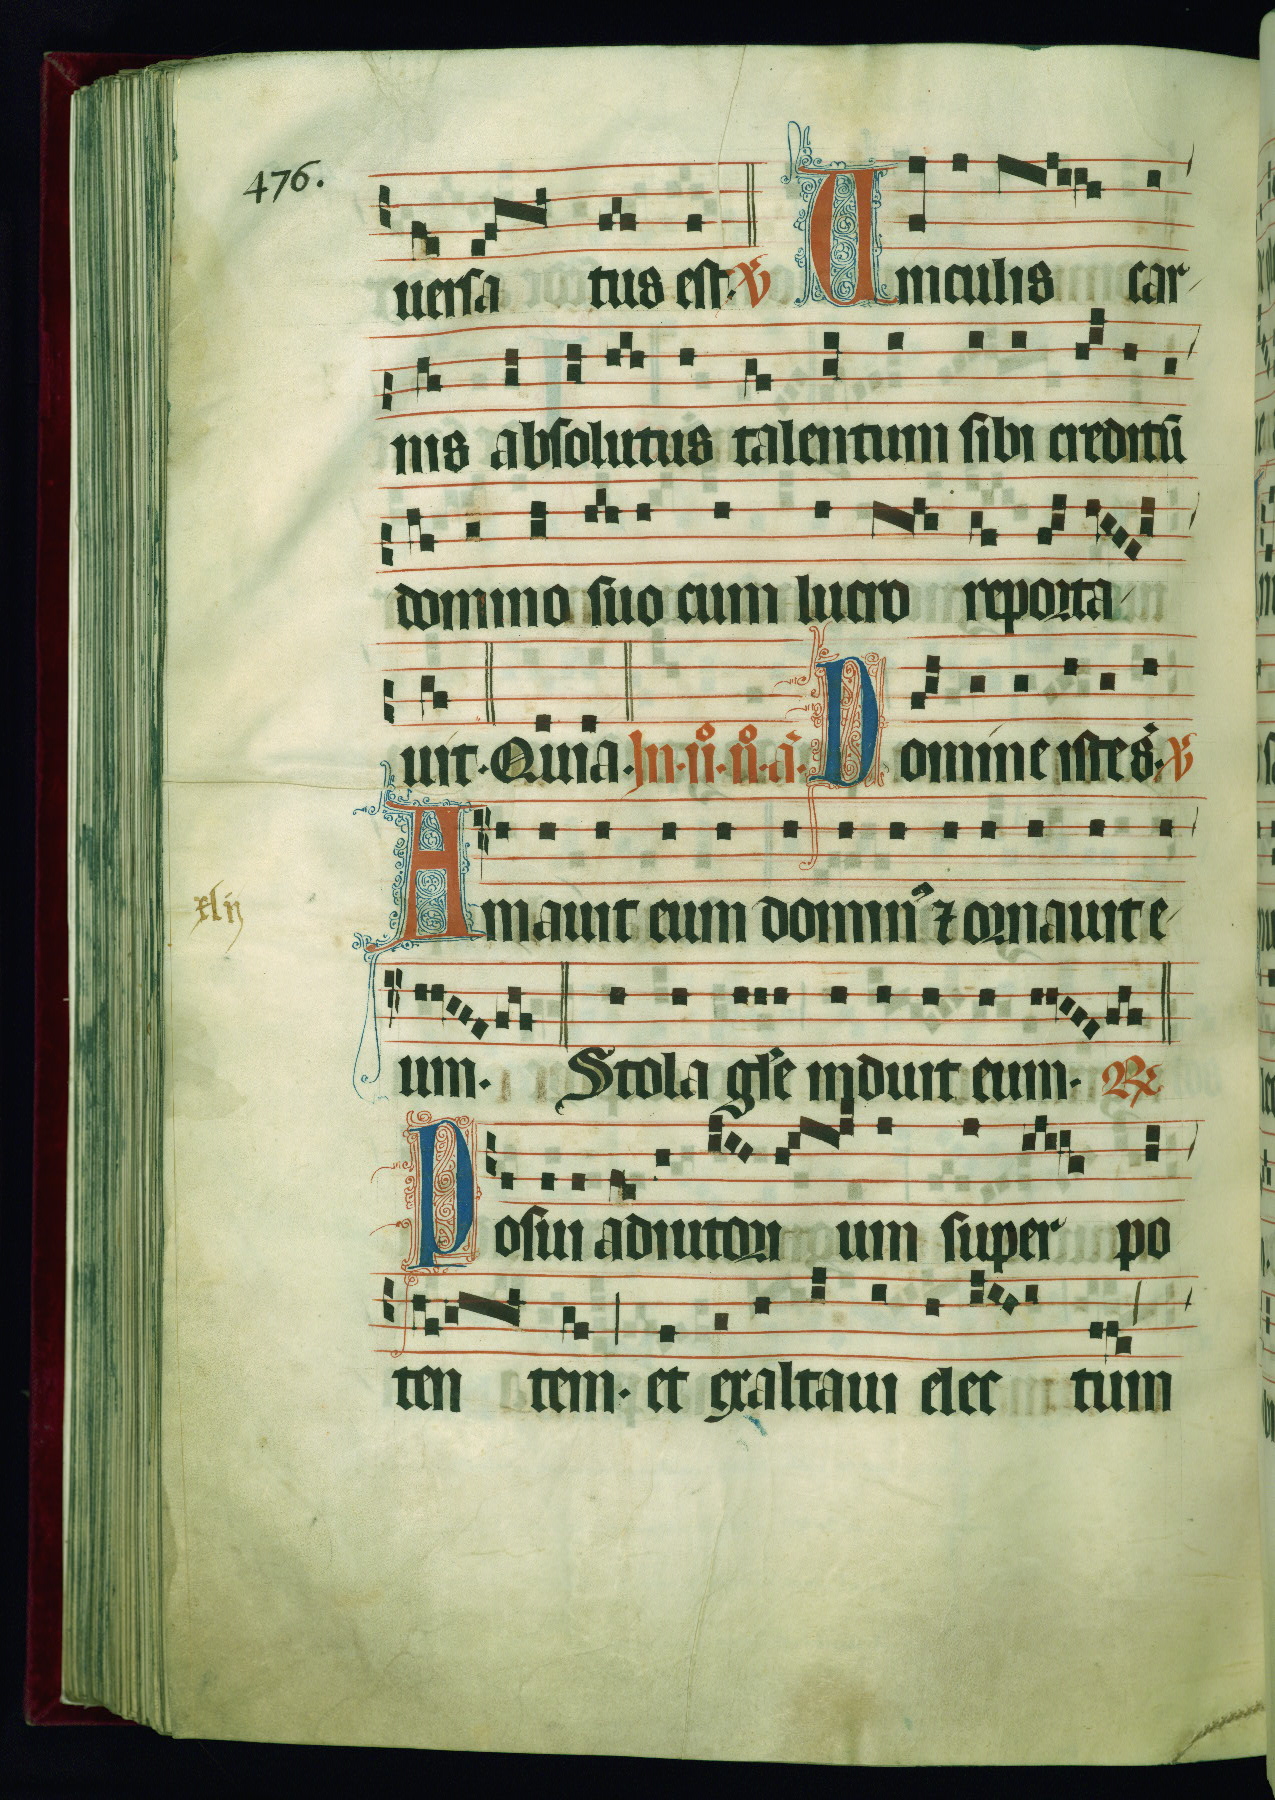 476.
uersa tus est. ℣ Uinculis car
nis absolutus talentum sibi creditū
domino suo cum lucro reporta
uit. Quia. In. ii. n̊. a. Domine iste s. ℣
Amauit eum domin⁹ ⁊ ornauit e
xlij
um. Stola glꝛe induit eum. ℟
Posui adiutori um super po
ten tem. et exaltaui elec tum